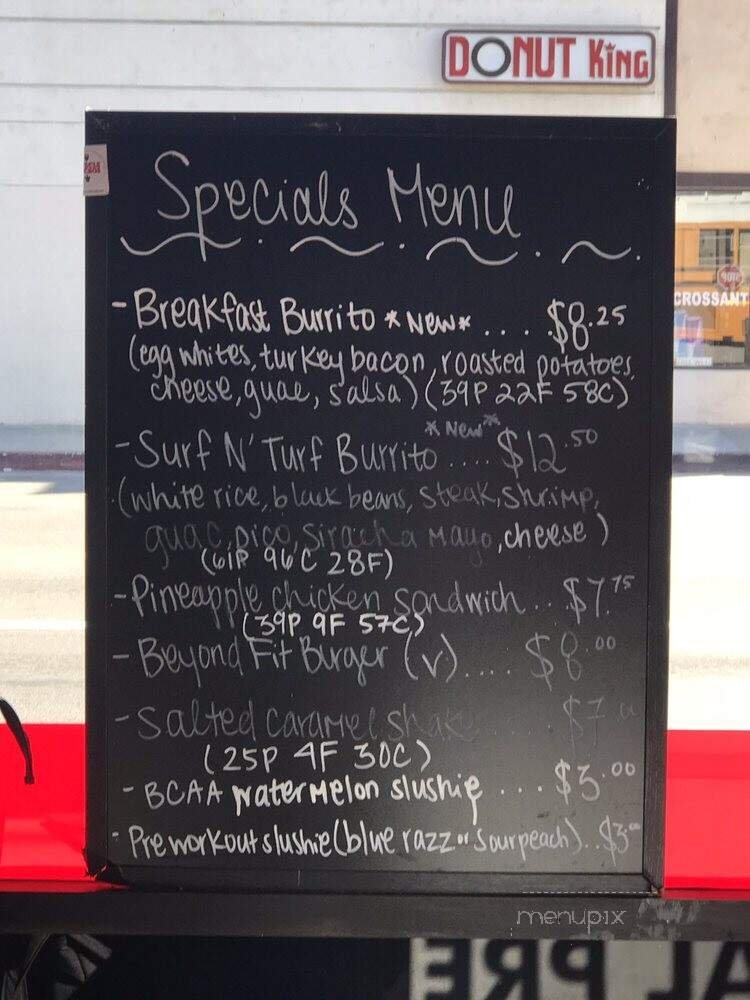 DONUT KING
Specials Menu
CROSSANT
- Breakfast Burrito *New* .... $8.25
(egg whites, turkey bacon, roasted potatoes,
cheese, guac, salsa) (39P 22F 58C)
*New*
- Surf N' Turf Burrito .... $12.50
(white rice, black beans, steak, shrimp,
guac, pico, siracha mayo, cheese)
(61P 96C 28F)
- Pineapple chicken sandwich .. $7.75
(39P 9F 57C)
- Beyond Fit Burger (v) .... $8.00
- Salted caramel shake
(25P 4F 30C)
- BCAA watermelon slushie ... $3.00
- Pre workout slushie (blue razz or sour peach) .. $3.00
menupix